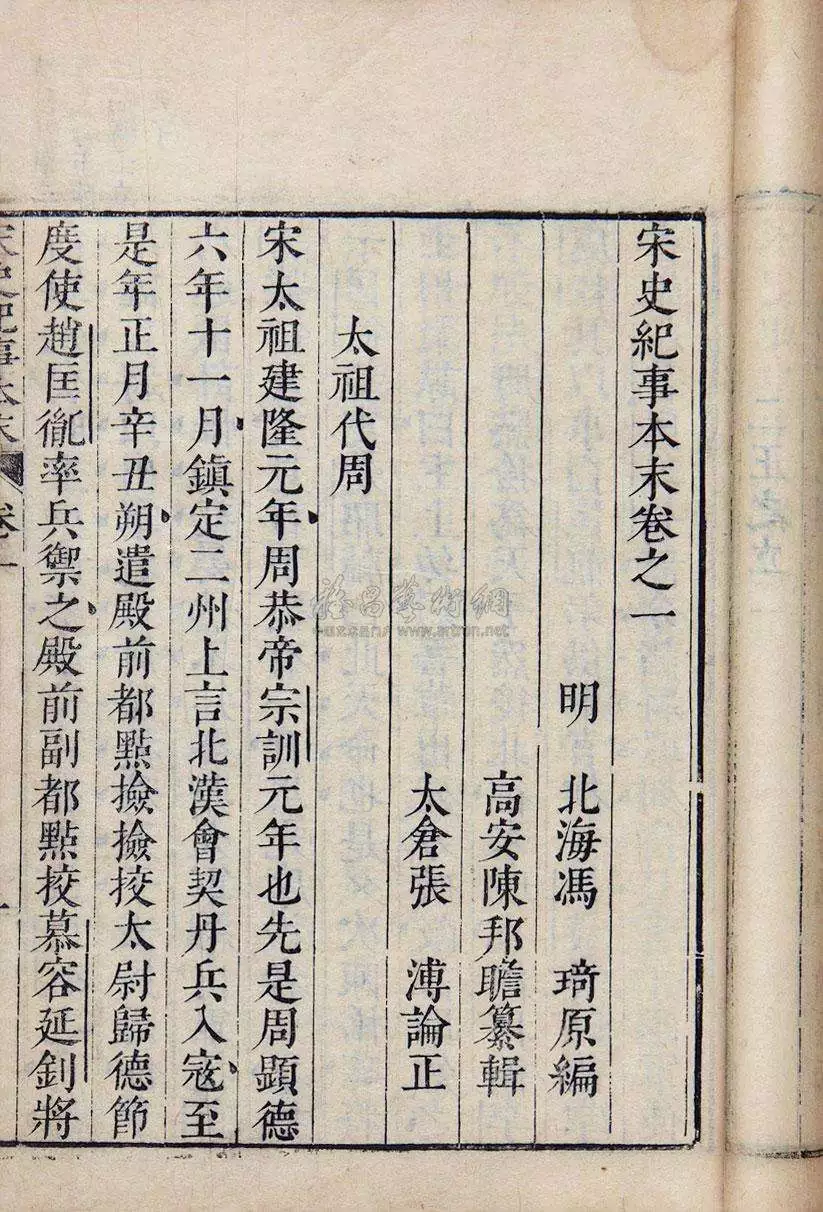 宋史紀事本末卷之一
明 北海馮 琦原編
高安陳邦瞻纂輯
太倉張 溥論正
太祖代周
宋太祖建隆元年周恭帝宗訓元年也先是周顯德
六年十一月鎮定二州上言北漢會契丹兵入寇至
是年正月辛丑朔遣殿前都點撿撿挍太尉歸德節
度使趙匡胤率兵禦之殿前副都點挍慕容延釗將
宋史紀事本末 卷一 一
雅昌藝術網
www.artron.net